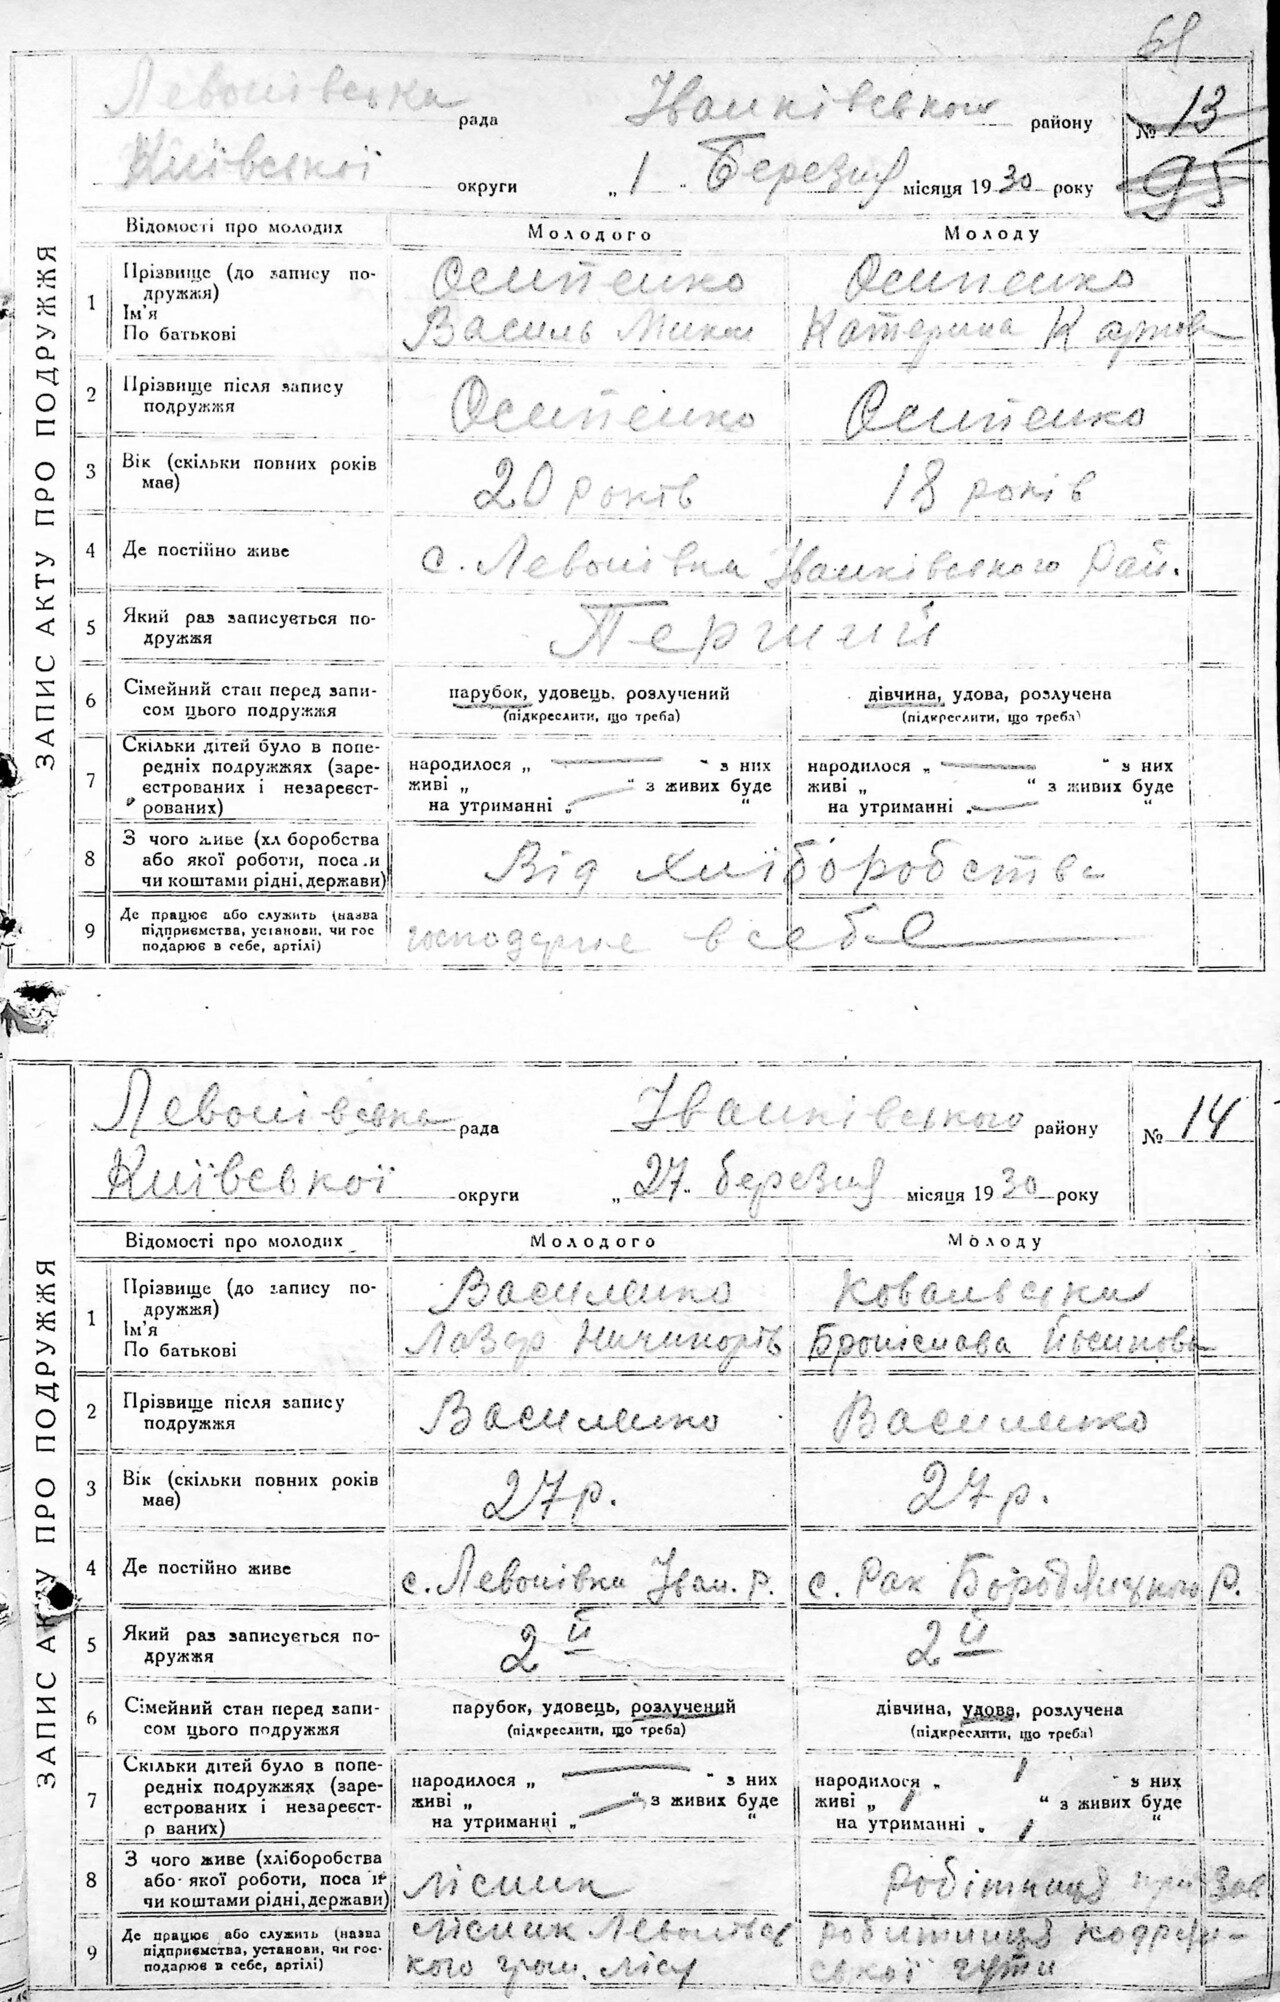 68
ЗАПИС АКТУ ПРО ПОДРУЖЖЯ
Левонівська рада Іванківського району № 13
Київської округи „ 1 " Березня місяця 1930 року 95
Відомості про молодих Молодого Молоду
1 Прізвище (до запису по- Осипенко Осипенко
дружжя)
Ім'я Василь Микол Катерина Карпова
По батькові
2 Прізвище після запису Осипенко Осипенко
подружжя
3 Вік (скільки повних років 20 років 18 років
має)
4 Де постійно живе с. Левонівка Іванківського Рай.
5 Який раз записується по- Перший
дружжя
6 Сімейний стан перед запи- парубок, удовець, розлучений дівчина, удова, розлучена
сом цього подружжя (підкреслити, що треба) (підкреслити, що треба)
7 Скільки дітей було в попе- народилося „ — " з них народилося „ — " з них
редніх подружжях (заре- живі „ " з живих буде живі „ " з живих буде
єстрованих і незареєст- на утриманні „ — " на утриманні „ — "
рованих)
8 З чого живе (хл боробства Від хліборобства
або якої роботи, поса.и
чи коштами рідні, держави)
9 Де працює або служить (назва господарює в себе
підприємства, установи, чи гос
подарює в себе, артілі)
ЗАПИС АКТУ ПРО ПОДРУЖЖЯ
Левонівська рада Іванківського району № 14
Київської округи „ 27 " березня місяця 1930 року
Відомості про молодих Молодого Молоду
1 Прізвище (до запису по- Василенко Ковалевська
дружжя)
Ім'я Лазар Ничипорів Броніслава Йосипова
По батькові
2 Прізвище після запису Василенко Василенко
подружжя
3 Вік (скільки повних років 27 р. 27 р.
має)
4 Де постійно живе с. Левонівка Іван. р. с. Рак Бородянцького Р.
5 Який раз записується по- 2й 2й
дружжя
6 Сімейний стан перед запи- парубок, удовець, розлучений дівчина, удова, розлучена
сом цього подружжя (підкреслити, що треба) (підкреслити, що треба)
7 Скільки дітей було в попе- народилося „ — " з них народилося „ 1 " з них
редніх подружжях (заре- живі „ " з живих буде живі „ 1 " з живих буде
єстрованих і незареєст- на утриманні „ " на утриманні „ 1 "
р ваних)
8 З чого живе (хліборобства лісник робітниця при Зав
або якої роботи, поса и
чи коштами рідні, держави)
9 Де працює або служить (назва лісник Левонівсь
підприємства, установи, чи гос- кого гром. лісу робитниця
подарює в себе, артілі) ської гути